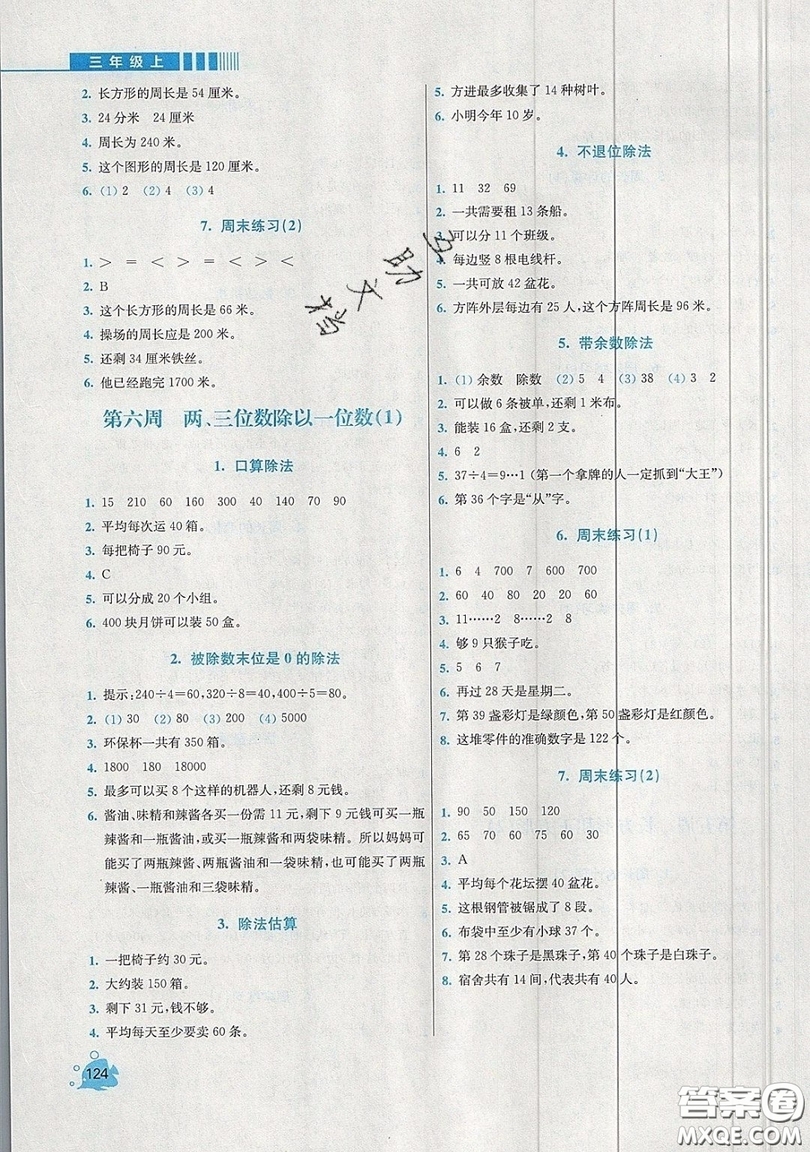 三年级上
2. 长方形的周长是 54 厘米。
3. 24 分米　24 厘米
4. 周长为 240 米。
5. 这个图形的周长是 120 厘米。
6. (1) 2　(2) 4　(3) 4
7. 周末练习(2)
1. ＞　＝　＜　＞　＝　＜　＞　＜
2. B
3. 这个长方形的周长是 66 米。
4. 操场的周长应是 200 米。
5. 还剩 34 厘米铁丝。
6. 他已经跑完 1700 米。
第六周　两、三位数除以一位数(1)
1. 口算除法
1. 15　210　60　160　300　40　140　70　90
2. 平均每次运 40 箱。
3. 每把椅子 90 元。
4. C
5. 可以分成 20 个小组。
6. 400 块月饼可以装 50 盒。
2. 被除数末位是 0 的除法
1. 提示:240÷4=60,320÷8=40,400÷5=80。
2. (1) 30　(2) 80　(3) 200　(4) 5000
3. 环保杯一共有 350 箱。
4. 1800　180　18000
5. 最多可以买 8 个这样的机器人，还剩 8 元钱。
6. 酱油、味精和辣酱各买一份需 11 元，剩下 9 元钱可买一瓶
辣酱和一瓶酱油，或买一瓶辣酱和两袋味精。所以妈妈可
能买了两瓶辣酱、两瓶酱油和一袋味精，也可能买了两瓶
辣酱、一瓶酱油和三袋味精。
3. 除法估算
1. 一把椅子约 30 元。
2. 大约装 150 箱。
3. 剩下 31 元，钱不够。
4. 平均每天至少要卖 60 条。
124
5. 方进最多收集了 14 种树叶。
6. 小明今年 10 岁。
4. 不退位除法
1. 11　32　69
2. 一共需要租 13 条船。
3. 可以分 11 个班级。
4. 每边竖 8 根电线杆。
5. 一共可放 42 盆花。
6. 方阵外层每边有 25 人，这个方阵周长是 96 米。
5. 带余数除法
1. (1) 余数　除数　(2) 5　4　(3) 38　(4) 3　2
2. 可以做 6 条被单，还剩 1 米布。
3. 能装 16 盒，还剩 2 支。
4. 6　2
5. 37÷4=9…1 (第一个拿牌的人一定抓到“大王”)
6. 第 36 个字是“从”字。
6. 周末练习(1)
1. 6　4　700　7　600　700
2. 60　40　80　20　20　60
3. 11……2　8……2
4. 够 9 只猴子吃。
5. 5　6　7
6. 再过 28 天是星期二。
7. 第 39 盏彩灯是绿颜色，第 50 盏彩灯是红颜色。
8. 这堆零件的准确数字是 122 个。
7. 周末练习(2)
1. 90　50　150　120
2. 65　70　60　75　60　30
3. A
4. 平均每个花坛摆 40 盆花。
5. 这根钢管被锯成了 8 段。
6. 布袋中至少有小球 37 个。
7. 第 28 个珠子是黑珠子，第 40 个珠子是白珠子。
8. 宿舍共有 14 间，代表共有 40 人。
答案圈
MXQE.COM